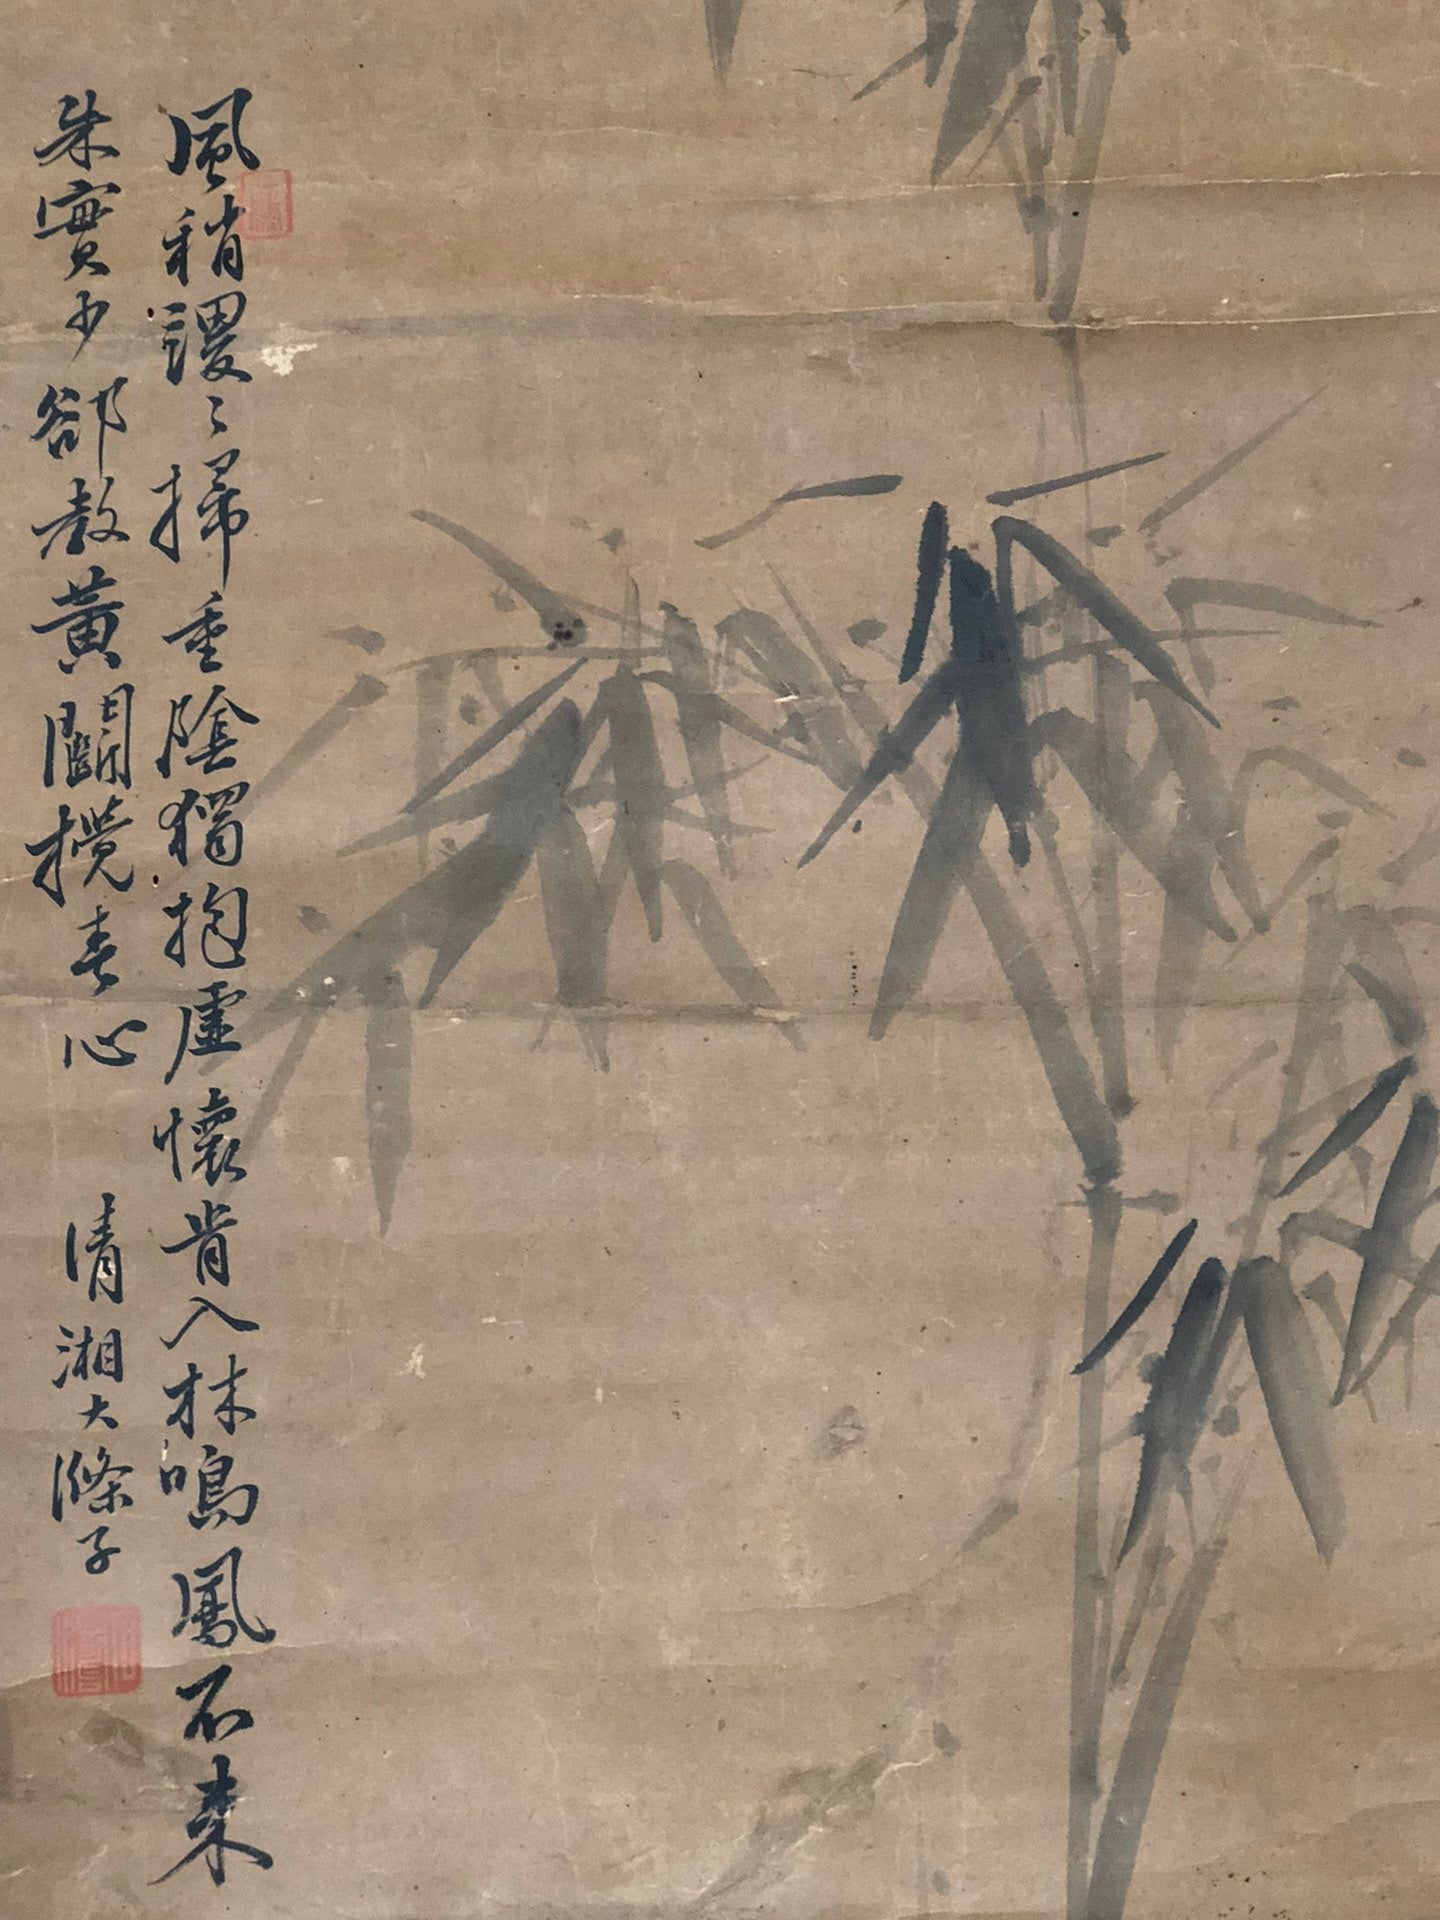 風稍謖〻掃重陰獨抱虛懷肯入林鳴鳳不来
朱實少卻教黃鸝攪春心
清湘大滌子